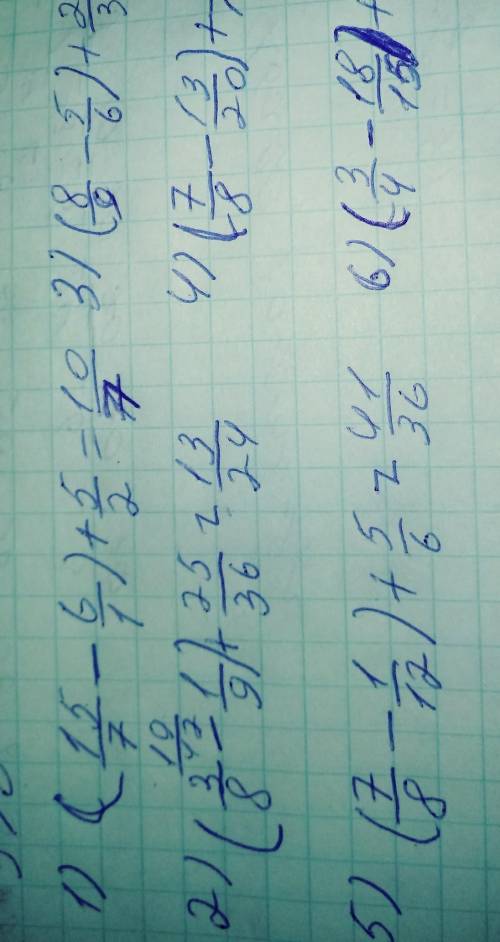 1) (15/7 - 6/1) + 5/2 = 10/7 3) (8/9 - 5/6) + 2/3
19/72
2) (3/8 - 1/9) + 25/36 = 13/24 4) (7/8 - 13/20) +
5) (7/8 - 1/12) + 5/6 = 41/36 6) (3/4 - 18/15) +